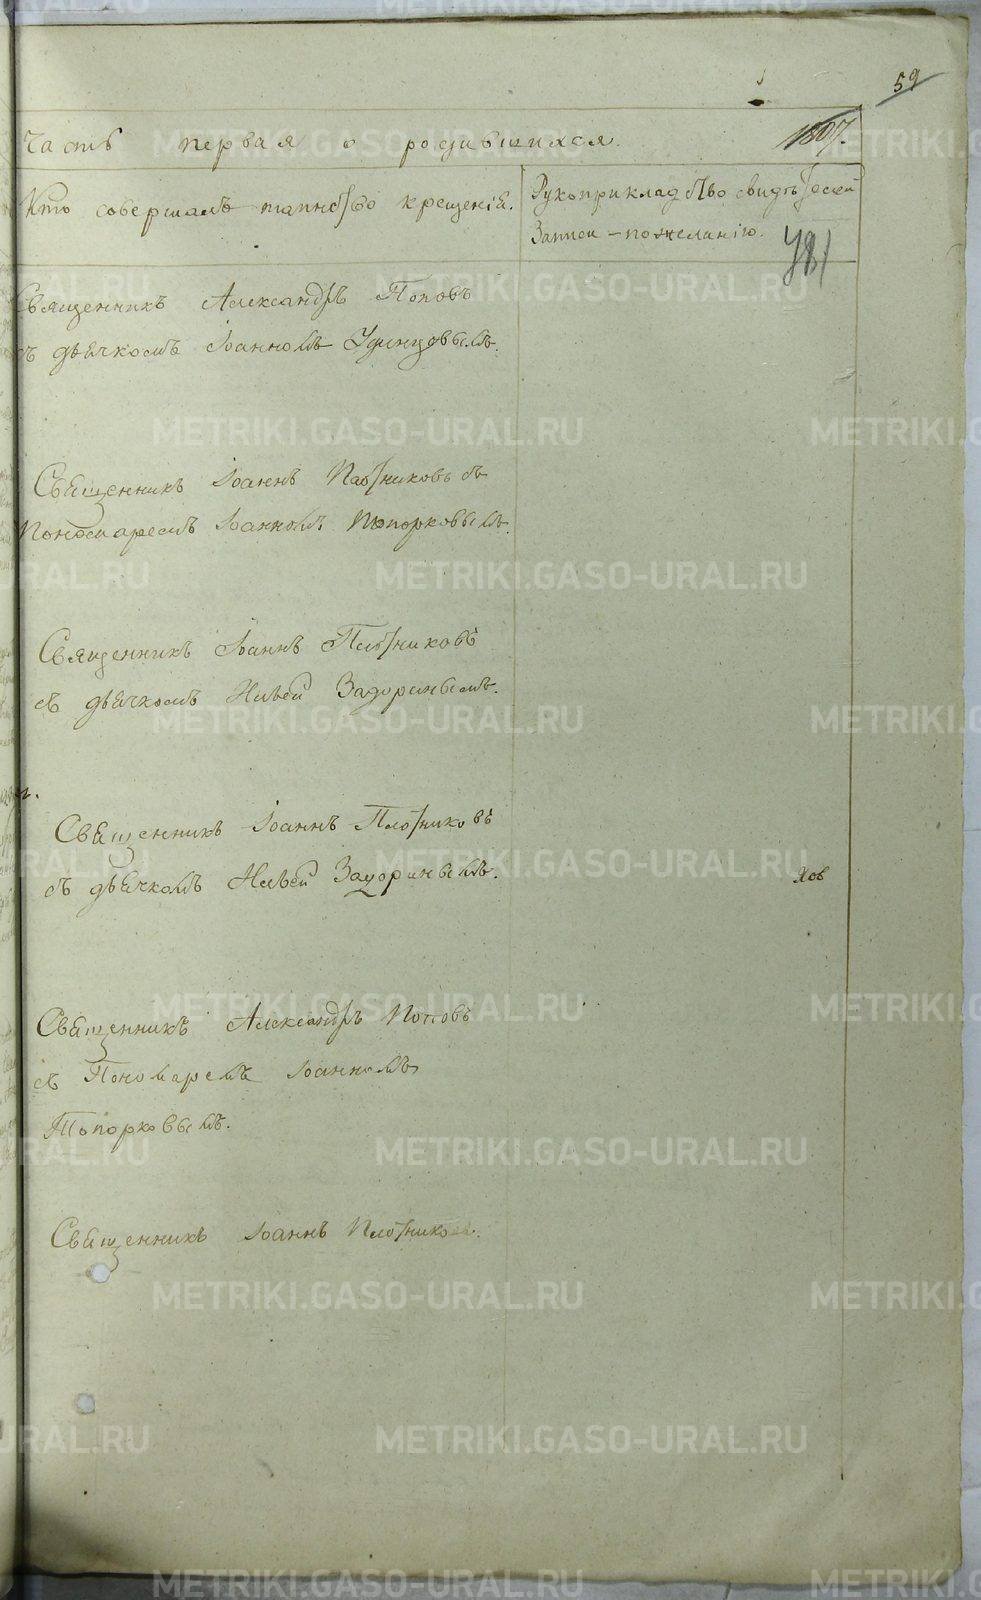 59
Часть первая о родившихся.
1807.
Кто совершалъ таинство крещенія.
Рукоприкладство свидѣтелей
Записи – по желанію.
781
Священникъ Александръ Поповъ
съ дьячкомъ Іоанномъ Удинцовымъ.
Священникъ Іоаннъ Плотниковъ съ
Пономаремъ Іоанномъ Топорковымъ.
Священникъ Іоаннъ Плотниковъ
съ дьячкомъ Задоринымъ.
Священникъ Іоаннъ Плотниковъ
съ дьячкомъ Задоринымъ.
Священникъ Александръ Поповъ
съ Пономаремъ Іоанномъ
Топорковымъ.
Священникъ Іоаннъ Плотниковъ.
METRIKI.GASO-URAL.RU